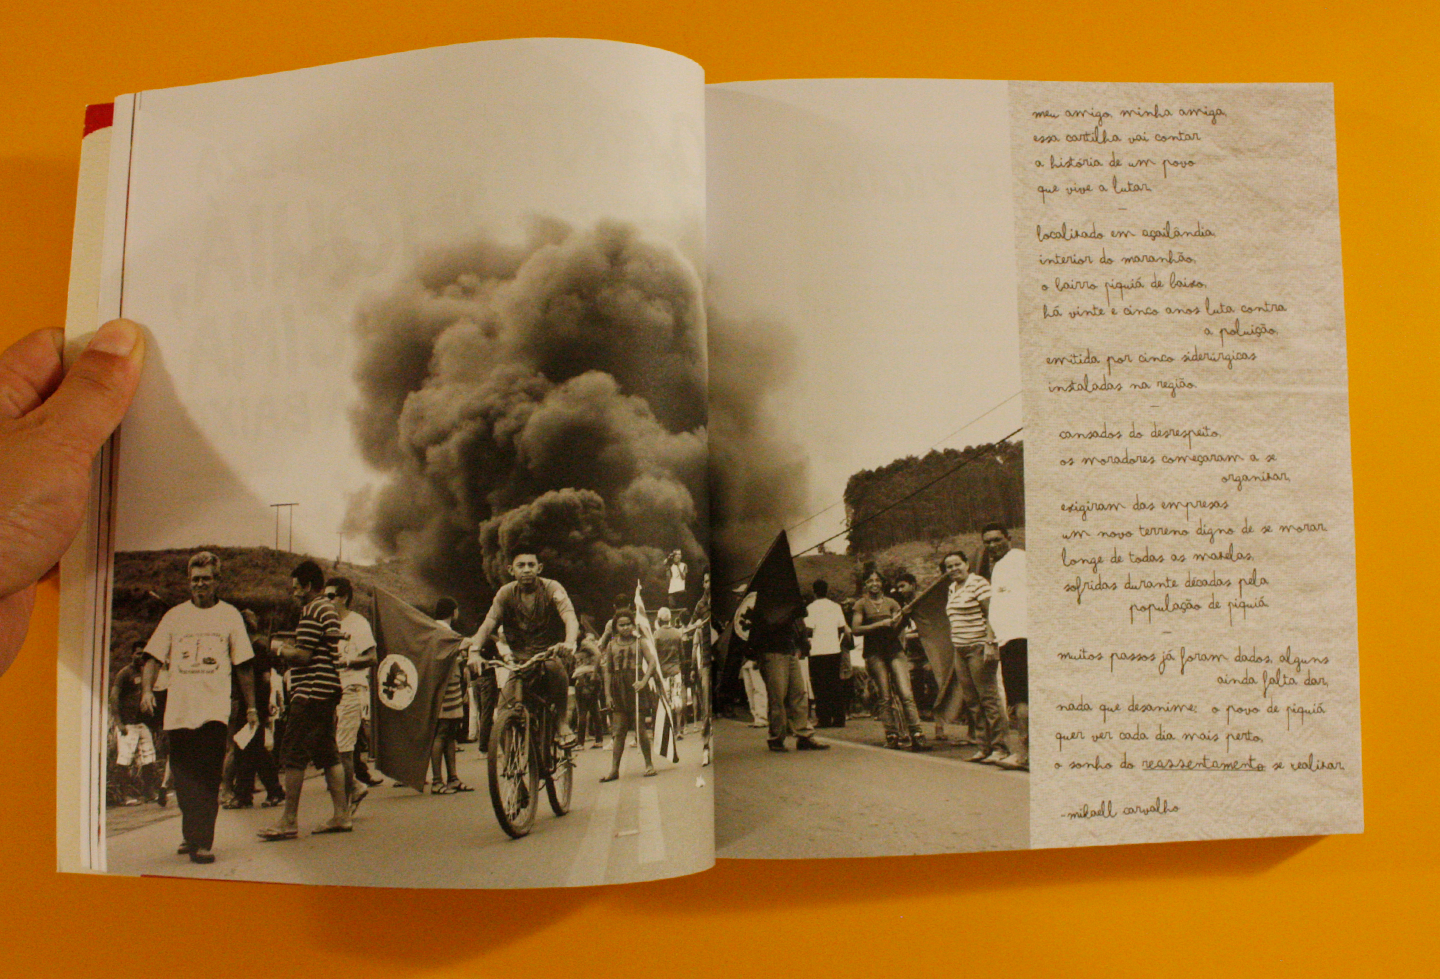 meu amigo, minha amiga,
essa cartilha vai contar
a história de um povo
que vive a lutar.
—
localizado em açailândia,
interior do maranhão,
o bairro piquiá de baixo,
há vinte e cinco anos luta contra
a poluição,
emitida por cinco siderúrgicas
instaladas na região.
—
cansados do desrespeito,
os moradores começaram a se
organizar,
exigiram das empresas
um novo terreno digno de se morar
longe de todas as mazelas,
sofridas durante décadas pela
população de piquiá
—
muitos passos já foram dados, alguns
ainda falta dar,
nada que desanime; o povo de piquiá
quer ver cada dia mais perto,
o sonho do reassentamento se realizar.
-mikaell carvalho